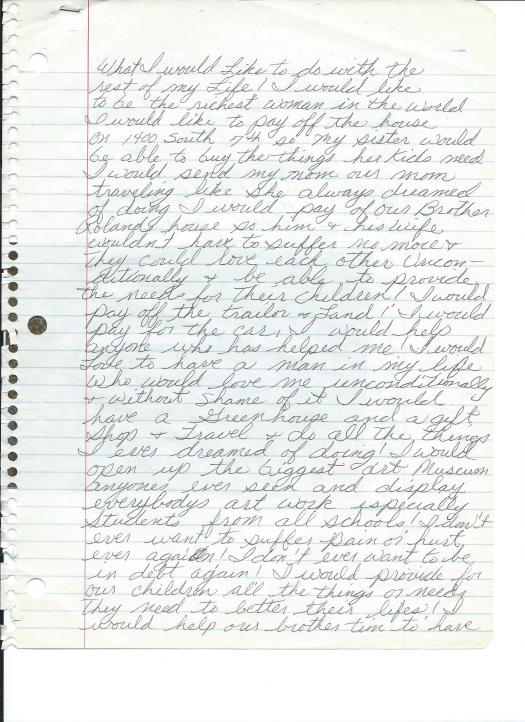 What I would Like to do with the
rest of my Life! I would like
to be the richest woman in the world
I would like to pay off the house
on 1400 South 7th so my sister would
be able to buy the things her kids need
I would send my mom our mom
traveling like she always dreamed
of doing I would pay of our Brother
Rolands house so him & his wife
wouldnt have to suffer no more &
they could love each other Uncon-
ditionally & be able to provide
the needs for their children! I would
pay off the trailor & Land! I would
pay for the car, I would help
anyone who has helped me! I would
Love to have a man in my life
who would love me unconditionally
& without shame of it I would
have a Greenhouse and a gift
shop & Travel & do all the things
I ever dreamed of doing! I would
open up the biggest art Museum
anyones ever seen and display
everybodys art work especially
Students from all schools! I don't
ever want to suffer pain or hurt
ever again! I don't ever want to be
in debt again! I would provide for
our children all the things or needs
they need to better their lifes! I
would help our brother tim to have